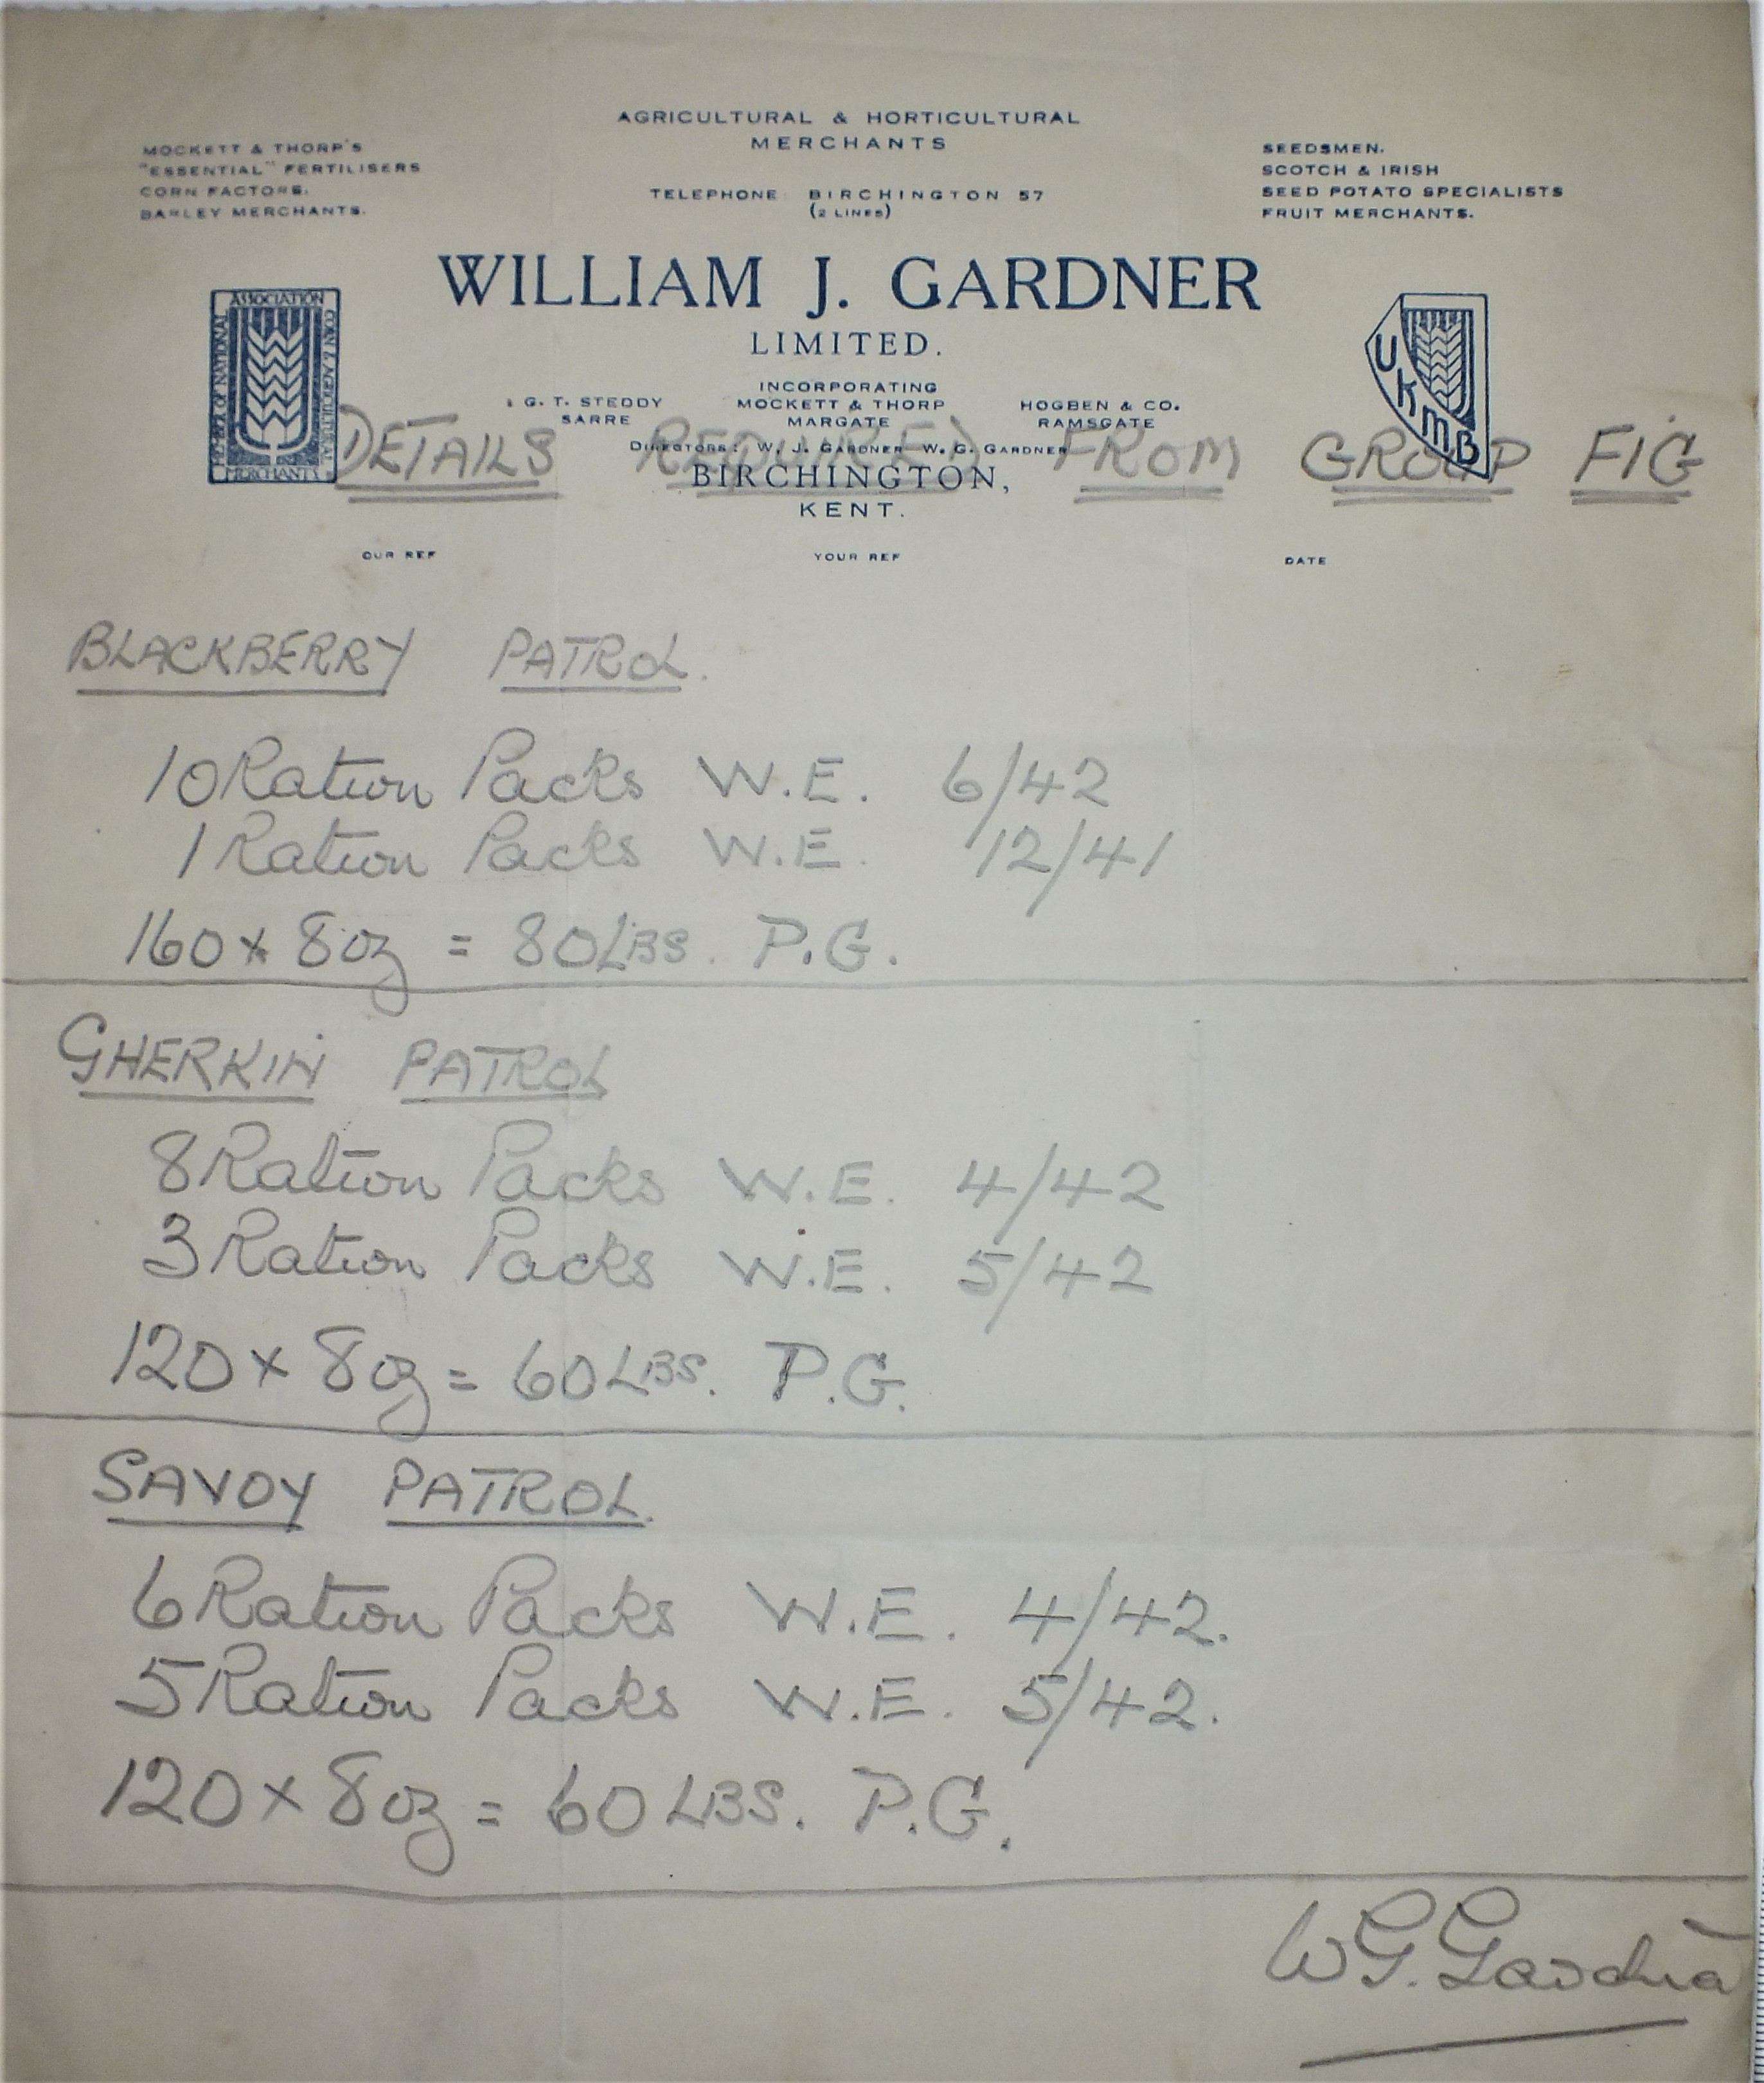 AGRICULTURAL & HORTICULTURAL
MERCHANTS
MOCKETT & THORP'S
"ESSENTIAL" FERTILISERS
CORN FACTORS.
BARLEY MERCHANTS.
TELEPHONE BIRCHINGTON 57
(2 LINES)
SEEDSMEN.
SCOTCH & IRISH
SEED POTATO SPECIALISTS
FRUIT MERCHANTS.
WILLIAM J. GARDNER
LIMITED.
MEMBER OF NATIONAL
ASSOCIATION
CORN & AGRICULTURAL
MERCHANTS
UKMB
INCORPORATING
G. T. STEDDY
SARRE
MOCKETT & THORP
MARGATE
HOGBEN & CO.
RAMSGATE
DIRECTORS: W. J. GARDNER W. G. GARDNER
BIRCHINGTON,
KENT.
DETAILS REQUIRED FROM GROUP FIG
OUR REF YOUR REF DATE
BLACKBERRY PATROL.
10 Ration Packs W.E. 6/42
1 Ration Packs W.E. 12/41
160 x 8oz = 80LBS. P.G.
GHERKIN PATROL
8 Ration Packs W.E. 4/42
3 Ration Packs W.E. 5/42
120 x 8oz = 60LBS. P.G.
SAVOY PATROL.
6 Ration Packs W.E. 4/42.
5 Ration Packs W.E. 5/42.
120 x 8oz = 60 LBS. P.G.
WG. Gardner